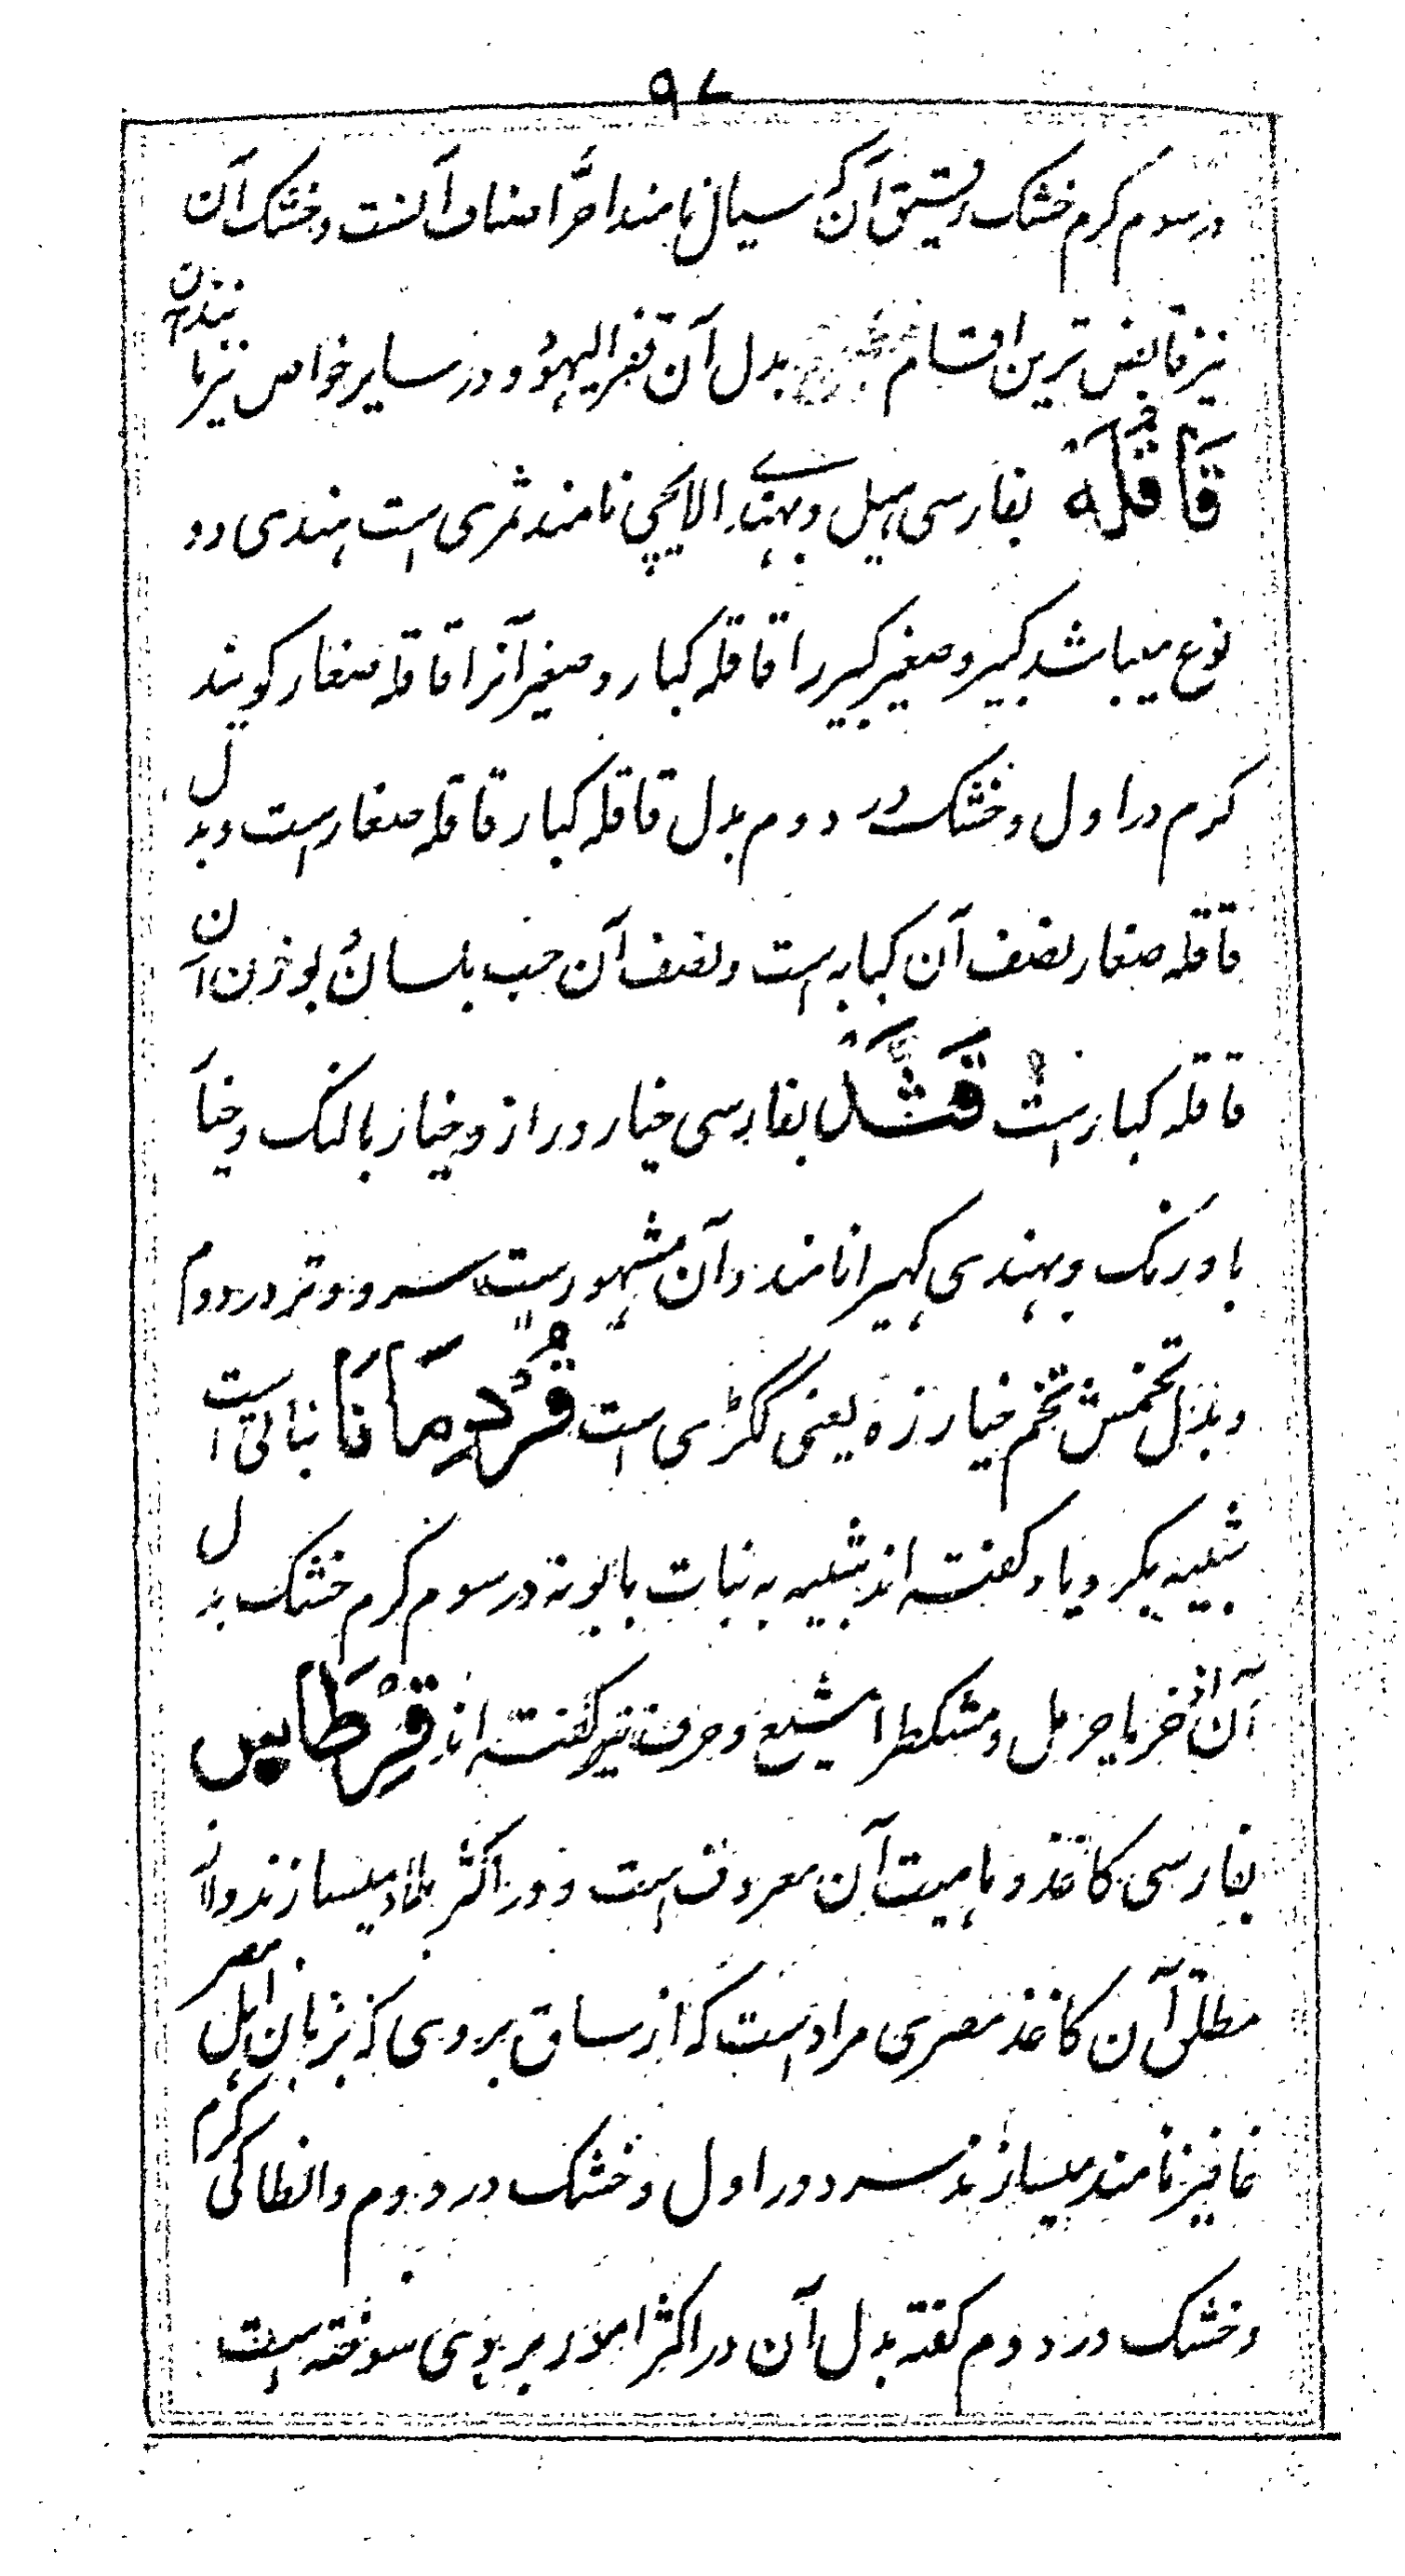 ٩٧
در سوم گرم خشک و قسیق آن که سیال نامند احرّ اصناف آنست و خشک آن
نیز قابض ترین اقسام بدل آن قفر الیهود و در سایر خواص نیز مانند آن
قَاقُلَه بفارسی هیل و بهندی الایچی نامند ثمری است هندی دو
نوع میباشد کبیر و صغیر کبیر را قاقله کبار و صغیر آنرا قاقله صغار کویند
کرم در اول و خشک در دوم بدل قاقله کبار قاقله صغار است و بدل
قاقله صغار نصف آن کبابه است و نصف آن حب بلسان بوزن آن
قاقله کبار است قَثَد بفارسی خیار دراز و خیار بالنک و خیا
باورنک و بهندی کهیرا نامند و آن مشهور است سرد و تر در دوم
و بدل تخمش تخم خیار زه یعنی ککڑی است قُرْدمَانَا نباتی است
شبیه بکرویا و کفته اند شبیه به نبات بابونه در سوم کرم خشک بدل
آن اذخر یا حرمل و مشکطرامشیع و حرف نیز کفته اند قِرْطَاس
بفارسی کاغذ و ماهیت آن معروف است و در اکثر بلاد میسازند و از
مطلق آن کاغذ مصری مراد است که از ساق بردی که بزبان اهل مصر
فافیر نامند میسازند سرد در اول و خشک در دوم و انطاکی کرم
و خشک در دوم کفته بدل آن در اکثر امور بردی سوخته است